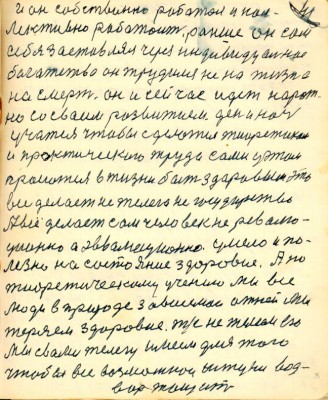 и он собственно работал и кол-
лективно работоит. раньше он сам
себя заставлял через индивидуалное
богатство он трудился не на жизнь а
на смерть. он и сей час идет
но со своим розвитием. ден и ноч
учатся чтобы сделатся тиоретиком
и проктического труда сами
в жизни быт здоровым.
все делает не тело не государство
А все делает сам человек не револю-
ционно а эвалюционно. умело и по-
лезно на состояние здоровие. А по
тиоретическому учению мы все
люди в природе зависемся от ней мы
теряем здоровие. т/к не тилом
мы своим телу имеем для того
чтобы все возможной штуки вод-